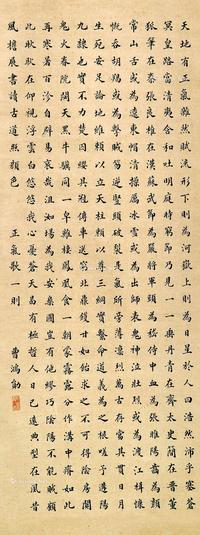 天地有正氣雜然賦流形下則為河嶽上則為日星於人曰浩然沛乎塞蒼
冥皇路當清夷含和吐明庭時窮節乃見一一垂丹青在齊太史簡在晉董
狐筆在秦張良椎在漢蘇武節為嚴將軍頭為嵇侍中血為張睢陽齒為顏
常山舌或為遼東帽清操厲冰雪或為出師表鬼神泣壯烈或為渡江楫慷
慨吞胡羯或為擊賊笏逆豎頭破裂是氣所旁薄凛烈萬古存當其貫日月
生死安足論地維賴以立天柱賴以尊三綱實繫命道義為之根嗟予遘陽
九隸也實不力楚囚纓其冠傳車送窮北鼎鑊甘如飴求之不可得陰房闃
鬼火春院閟天黑牛驥同一皁雞棲鳳凰食一朝蒙霧露分作溝中瘠如此
再寒暑百沴自辟易哀哉沮洳場為我安樂國豈有他繆巧陰陽不能賊顧
此耿耿在仰視浮雲白悠悠我心憂蒼天曷有極哲人日已遠典型在夙昔
風檐展書讀古道照顏色 正氣歌一則 曹鴻勛